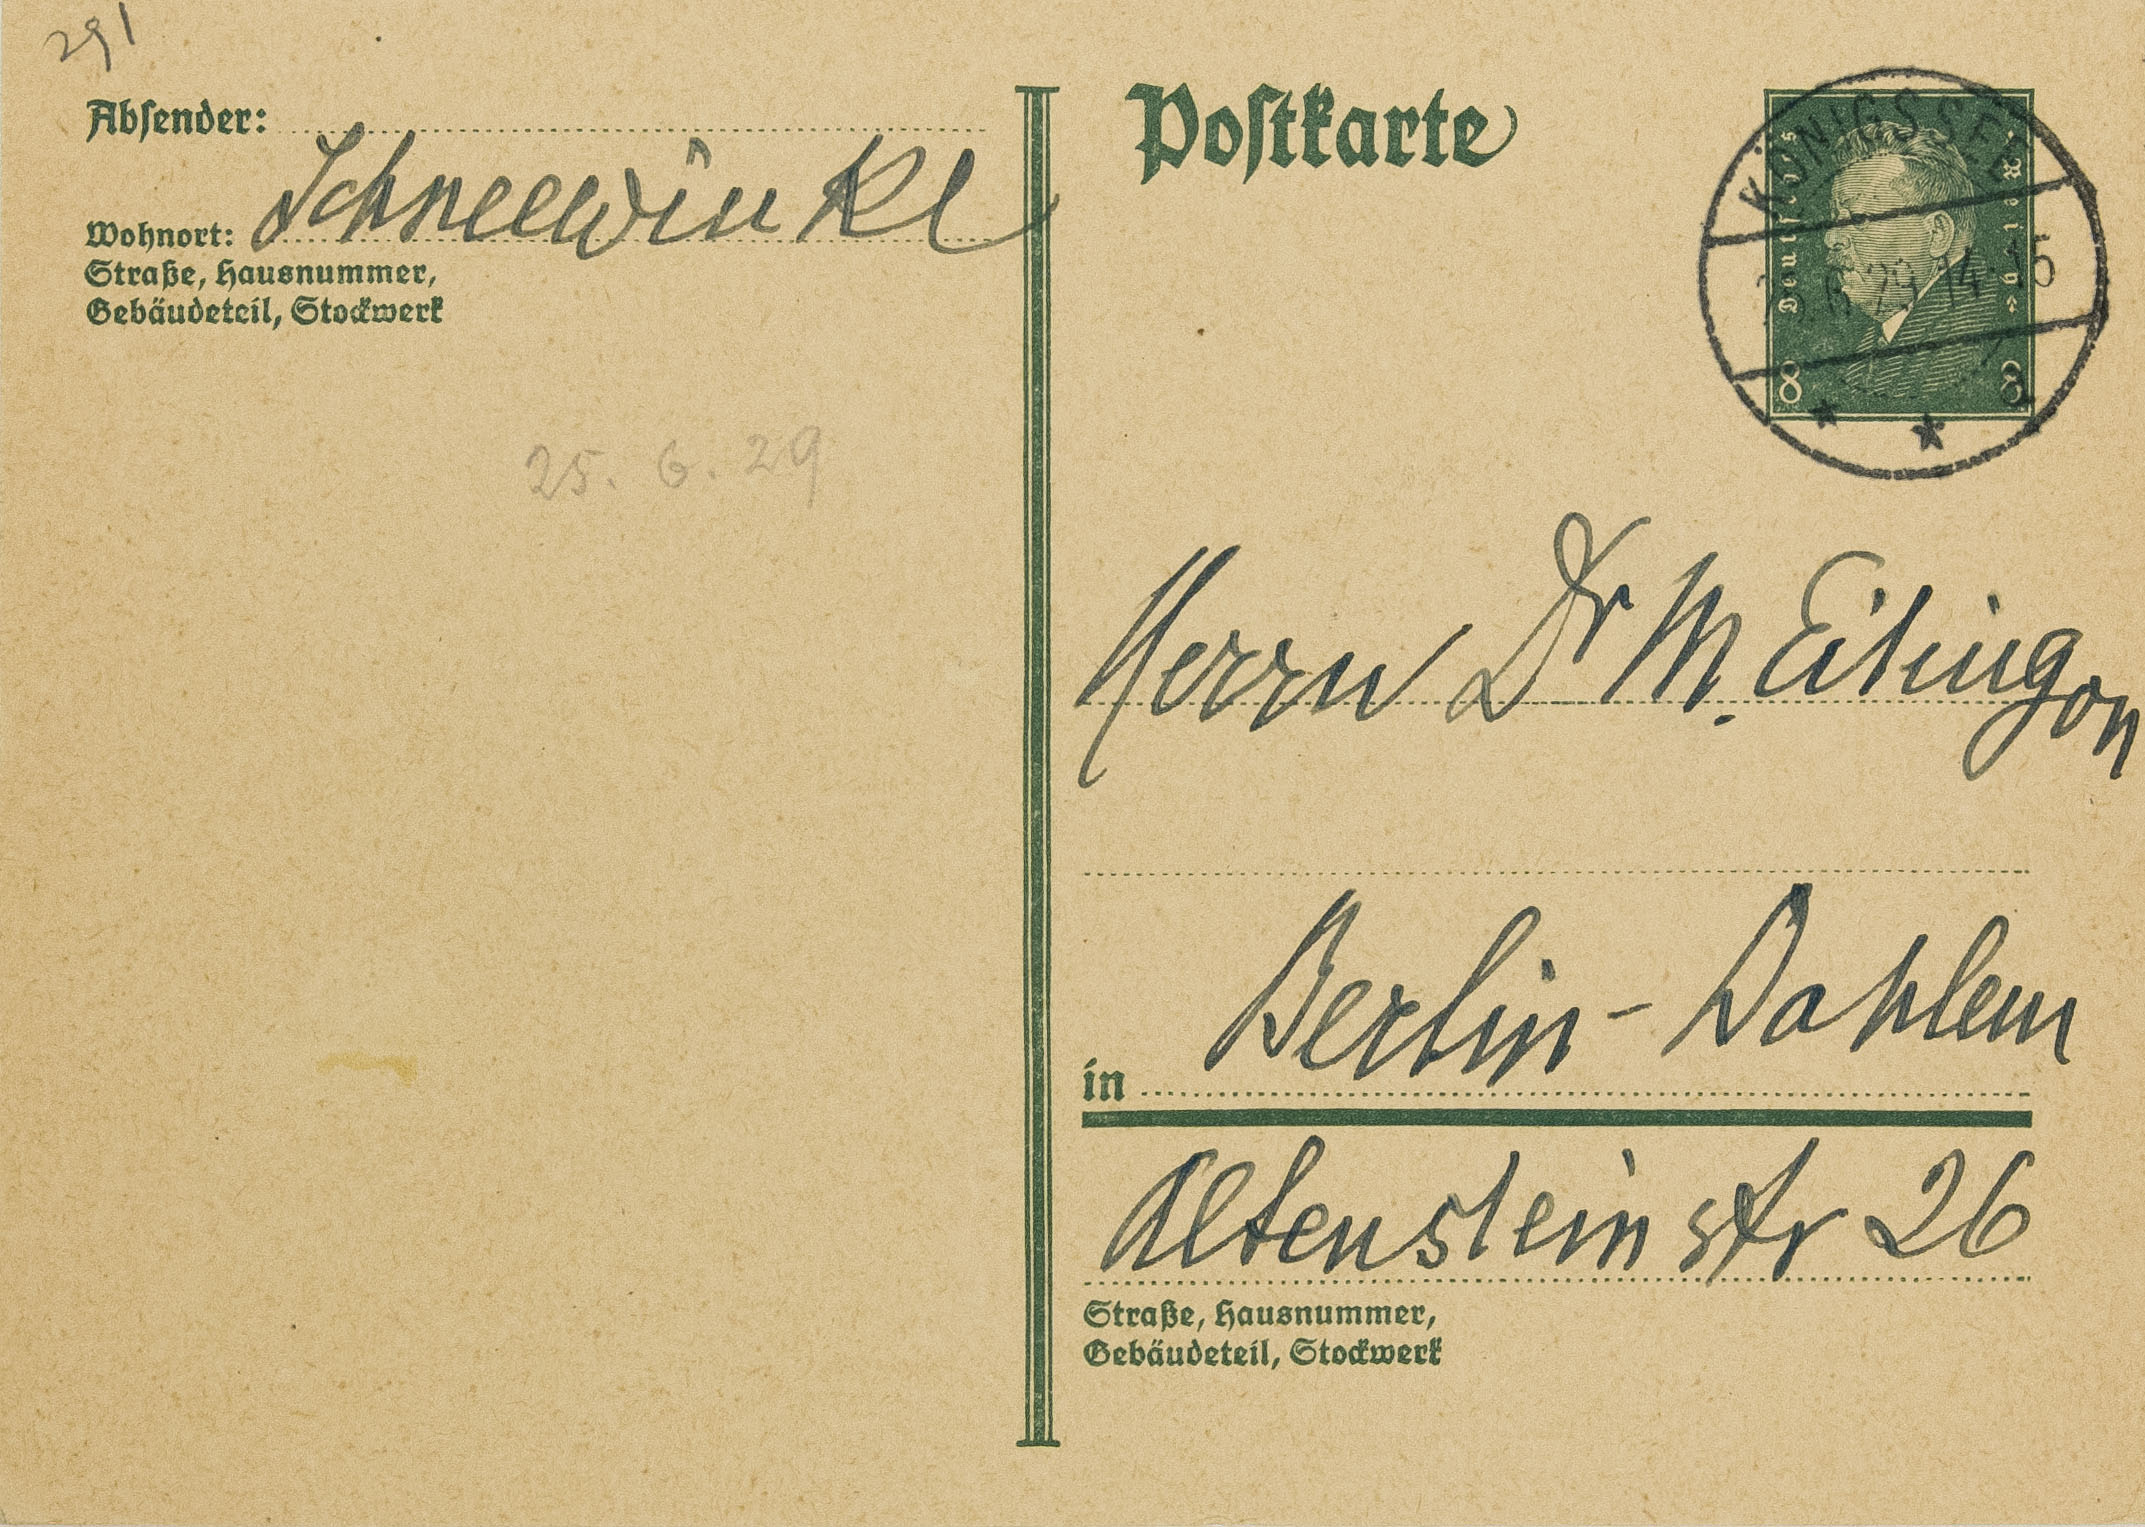 291
Absender:
Schneewinkl
Wohnort:
Straße, Hausnummer,
Gebäudeteil, Stockwerk
25. 6. 29
Postkarte
KÖNIGSSEE
6.29.14-15
Deutsches Reich
8 8
Herrn Dr M. Eitingon
in Berlin-Dahlem
Altensteinstr 26
Straße, Hausnummer,
Gebäudeteil, Stockwerk